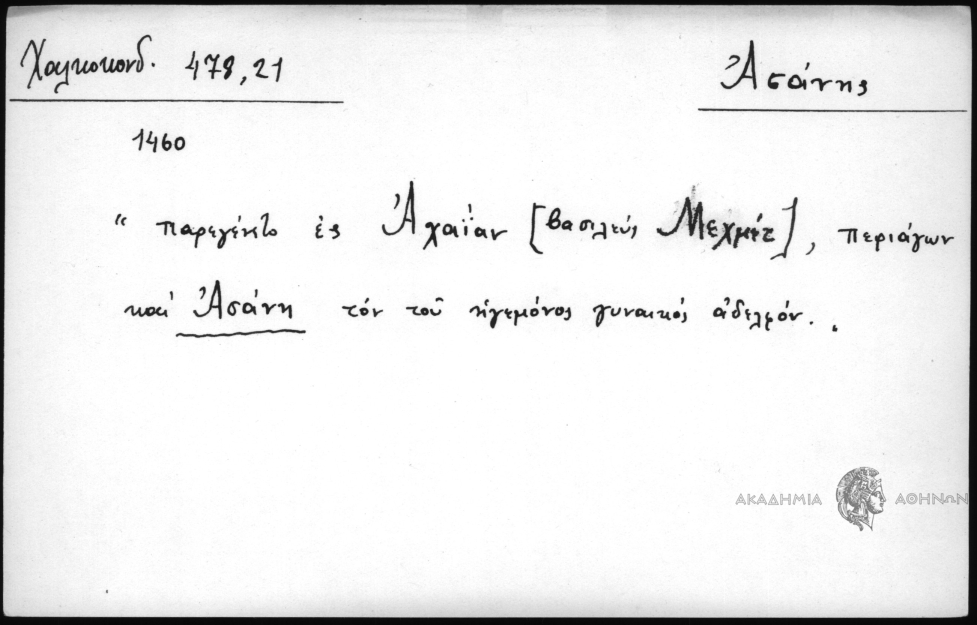 Χαλκοκονδ. 478,21
Ἀσάνης
1460
“ παρεγένετο ἐς Ἀχαΐαν [βασιλεύς Μεχμέτ], περιάγων
καί Ἀσάνη τόν τοῦ ἡγεμόνος γυναικός ἀδελφόν. „
ΑΚΑΔΗΜΙΑ ΑΘΗΝΩΝ